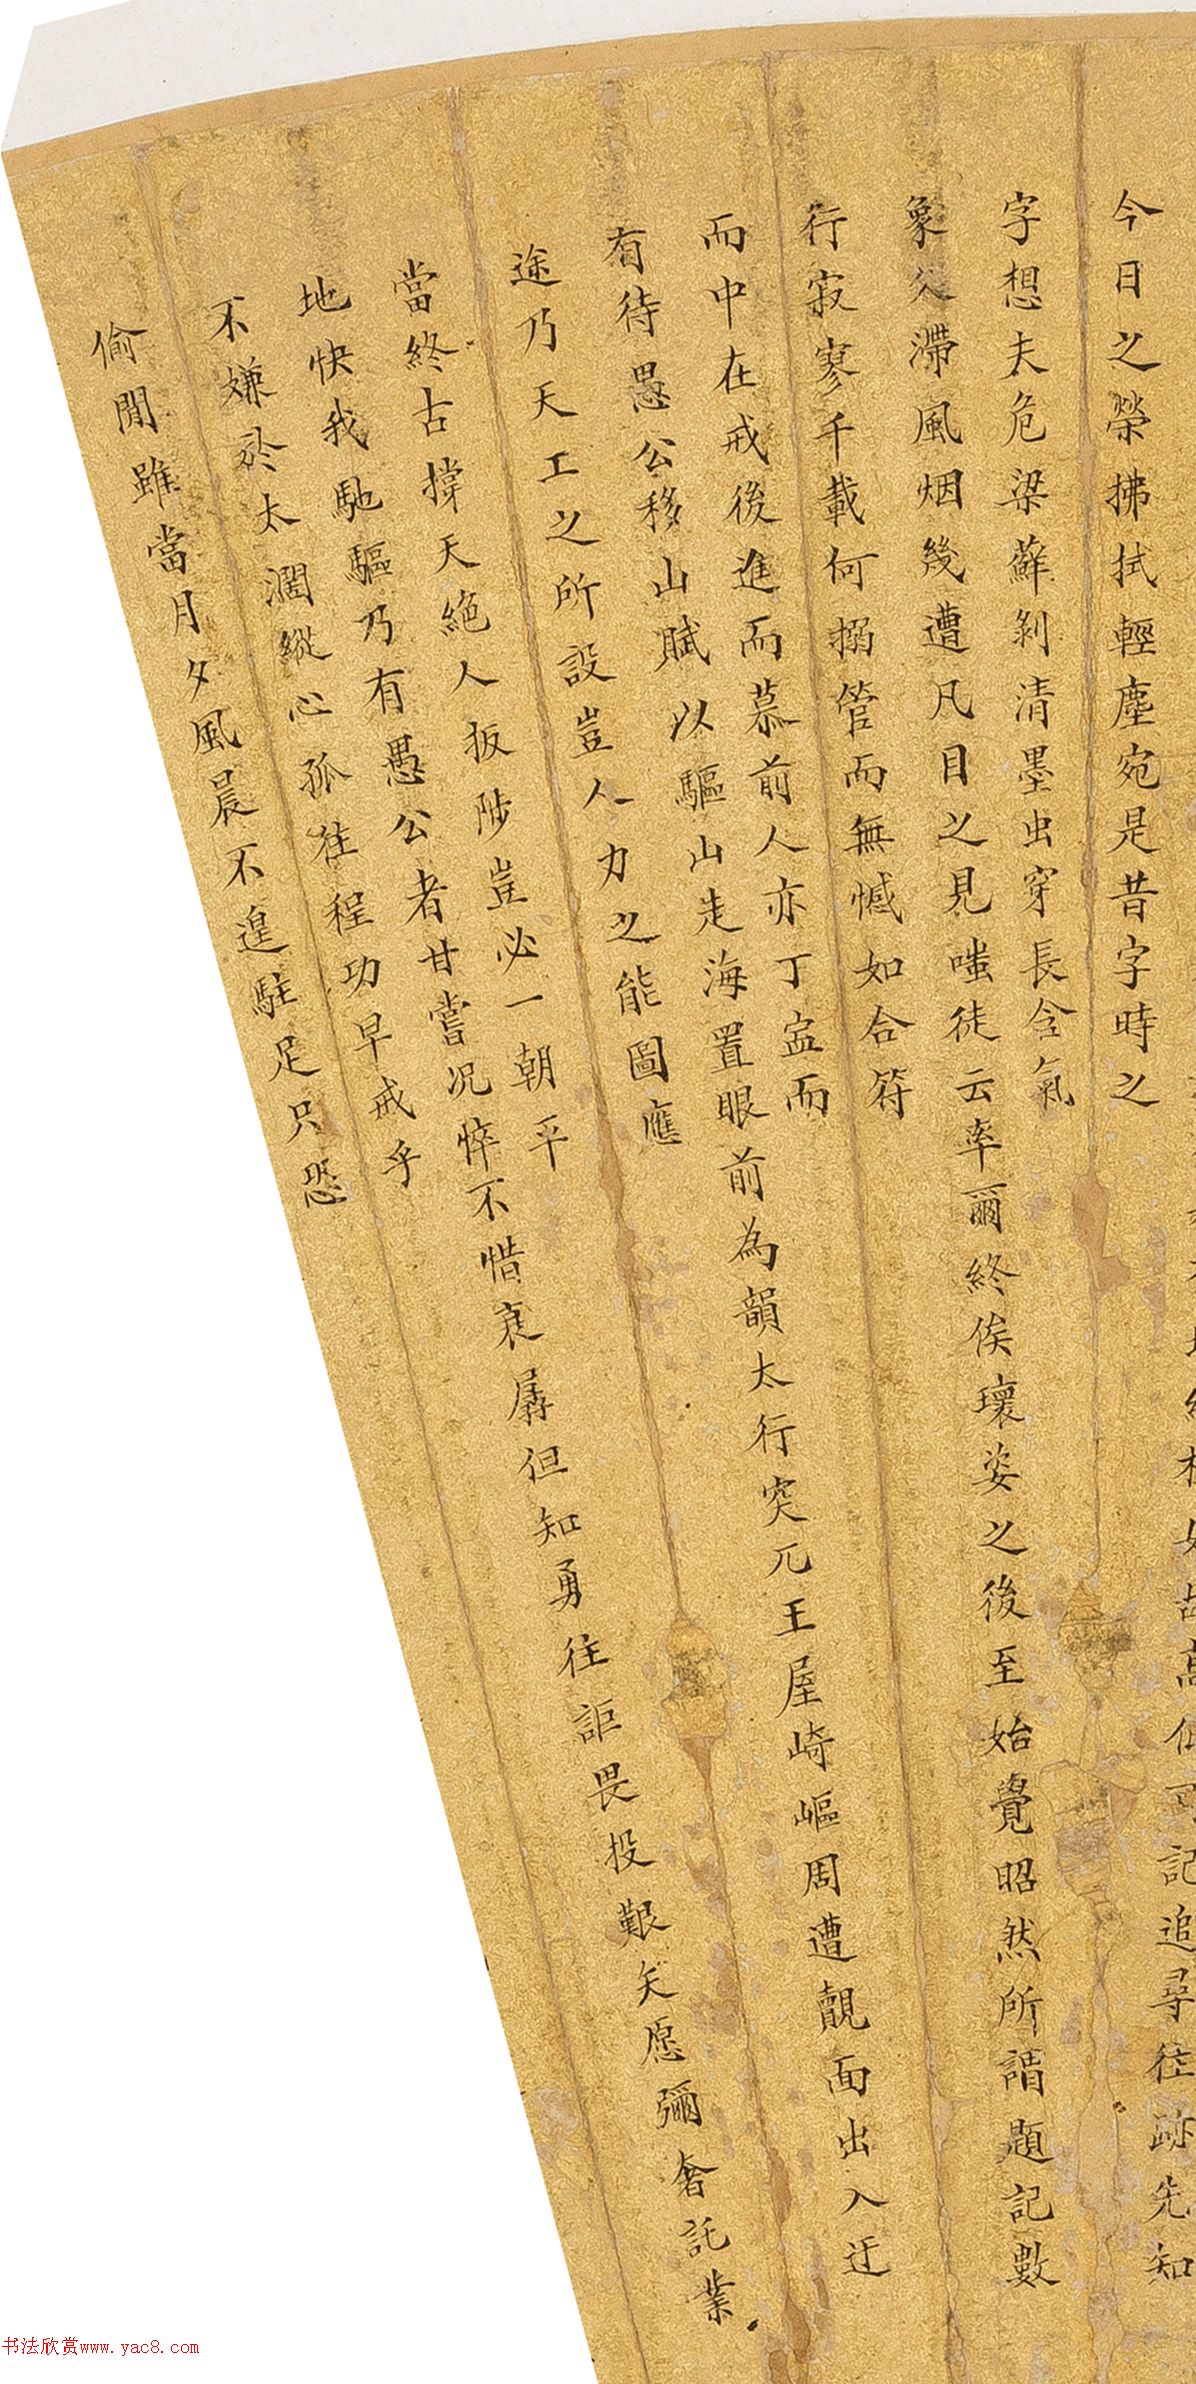 高低可記追尋往跡先知
今日之榮拂拭輕塵宛是昔字時之
字想夫危梁蘚剝清墨虫穿長含氣
象久滯風烟幾遭凡目之見嗤徒云率爾終俟瓌姿之後至始覺昭然所謂題記數
行寂寥千載何搦管而無憾如合符
而中在戒後進而慕前人亦丁寍而
有待愚公移山賦以驅山走海置眼前為韻太行突兀王屋崎嶇周遭覿面出入迂
途乃天工之所設豈人力之能圖應
當終古撑天絕人扳陟豈必一朝平
地快我馳驅乃有愚公者甘嘗况悴不惜衰孱但知勇往詎畏投艱矢愿彌奢託業
不嫌於太濶縱心孤往程功早戒乎
偷閒雖當月夕風晨不遑駐足只恐
书法欣赏www.yac8.com